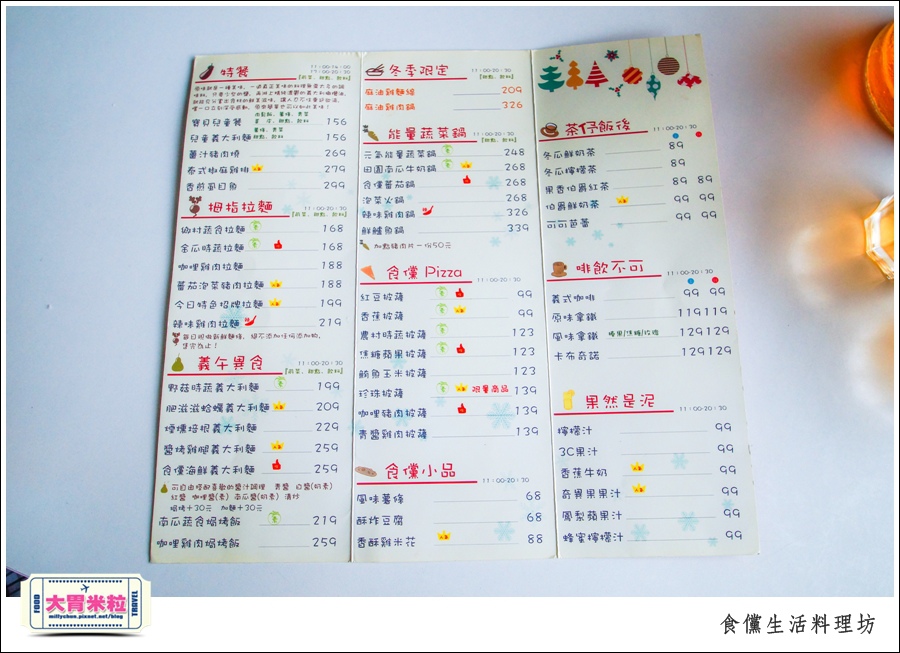 特餐
11:00-14:00
17:00-20:30
【前菜、甜點、飲料】
寶貝兒童餐 156
兒童義大利麵 156
薑汁豬肉燒 269
泰式椒麻雞排 279
香煎虱目魚 299
拇指拉麵
11:00-20:30
【前菜、甜點、飲料】
鄉村蔬食拉麵 168
金瓜時蔬拉麵 168
咖哩雞肉拉麵 188
蕃茄泡菜豬肉拉麵 188
今日特色招牌拉麵 199
辣味雞肉拉麵 219
義午異食
11:00-20:30
【前菜、甜點、飲料】
野菇時蔬義大利麵 199
肥滋滋蛤蠣義大利麵 209
煙燻培根義大利麵 229
醬烤雞腿義大利麵 259
食儻海鮮義大利麵 259
可自由搭配喜歡的醬汁調理 青醬 白醬(奶素)
紅醬 咖哩醬(素) 南瓜醬(奶素) 清炒
焗烤+30元 加麵+30元
南瓜蔬食焗烤飯 219
咖哩雞肉焗烤飯 259
冬季限定
11:00-20:30
【甜點、飲料】
麻油雞麵線 209
麻油雞肉鍋 326
能量蔬菜鍋
11:00-20:30
【甜點、飲料】
元氣能量蔬菜鍋 248
田園南瓜牛奶鍋 268
食儻蕃茄鍋 268
泡菜火鍋 268
辣味雞肉鍋 326
鮮鱸魚鍋 339
加點豬肉片一份50元
食儻 Pizza
11:00-20:30
紅豆披薩 99
香蕉披薩 99
農村時蔬披薩 123
焦糖蘋果披薩 123
鮪魚玉米披薩 123
珍珠披薩 限量商品 139
咖哩豬肉披薩 139
青醬雞肉披薩 139
食儻小品
11:00-20:30
風味薯條 68
酥炸豆腐 68
香酥雞米花 88
茶伃飯後
11:00-20:30
冬瓜鮮奶茶 89
冬瓜檸檬茶 89
果香伯爵紅茶 89 89
伯爵鮮奶茶 99 99
可可芭蕾 99 99
啡飲不可
11:00-20:30
義式咖啡 99 99
原味拿鐵 119 119
風味拿鐵 榛果/焦糖/玫瑰 129 129
卡布奇諾 129 129
果然是泥
11:00-20:30
檸檬汁 99
3C果汁 99
香蕉牛奶 99
奇異果果汁 99
鳳梨蘋果汁 99
蜂蜜檸檬汁 99
FOOD
大胃米粒
millychun.pixnet.net/blog
TRAVEL
食儻生活料理坊